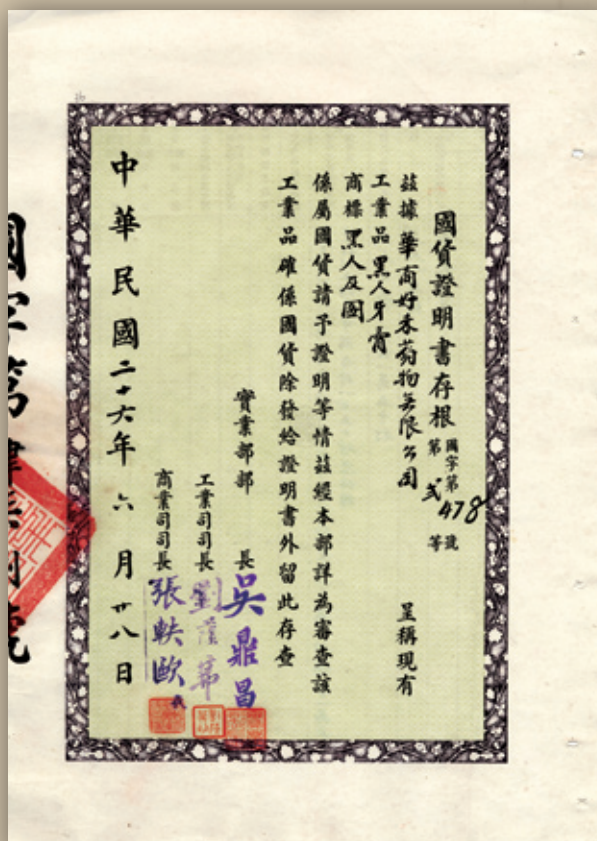 國貨證明書存根
國字第478號
第弍等
茲據華商好來药物無限公司 呈稱現有
工業品黑人牙膏
商標黑人及図
係屬國貨請予證明等情茲經本部詳為審查該
工業品確係國貨除發給證明書外留此存查
實業部部 長吳鼎昌
工業司司長劉蔭茀
商業司司長張軼歐
中華民國二十六年六月廿八日
國字第